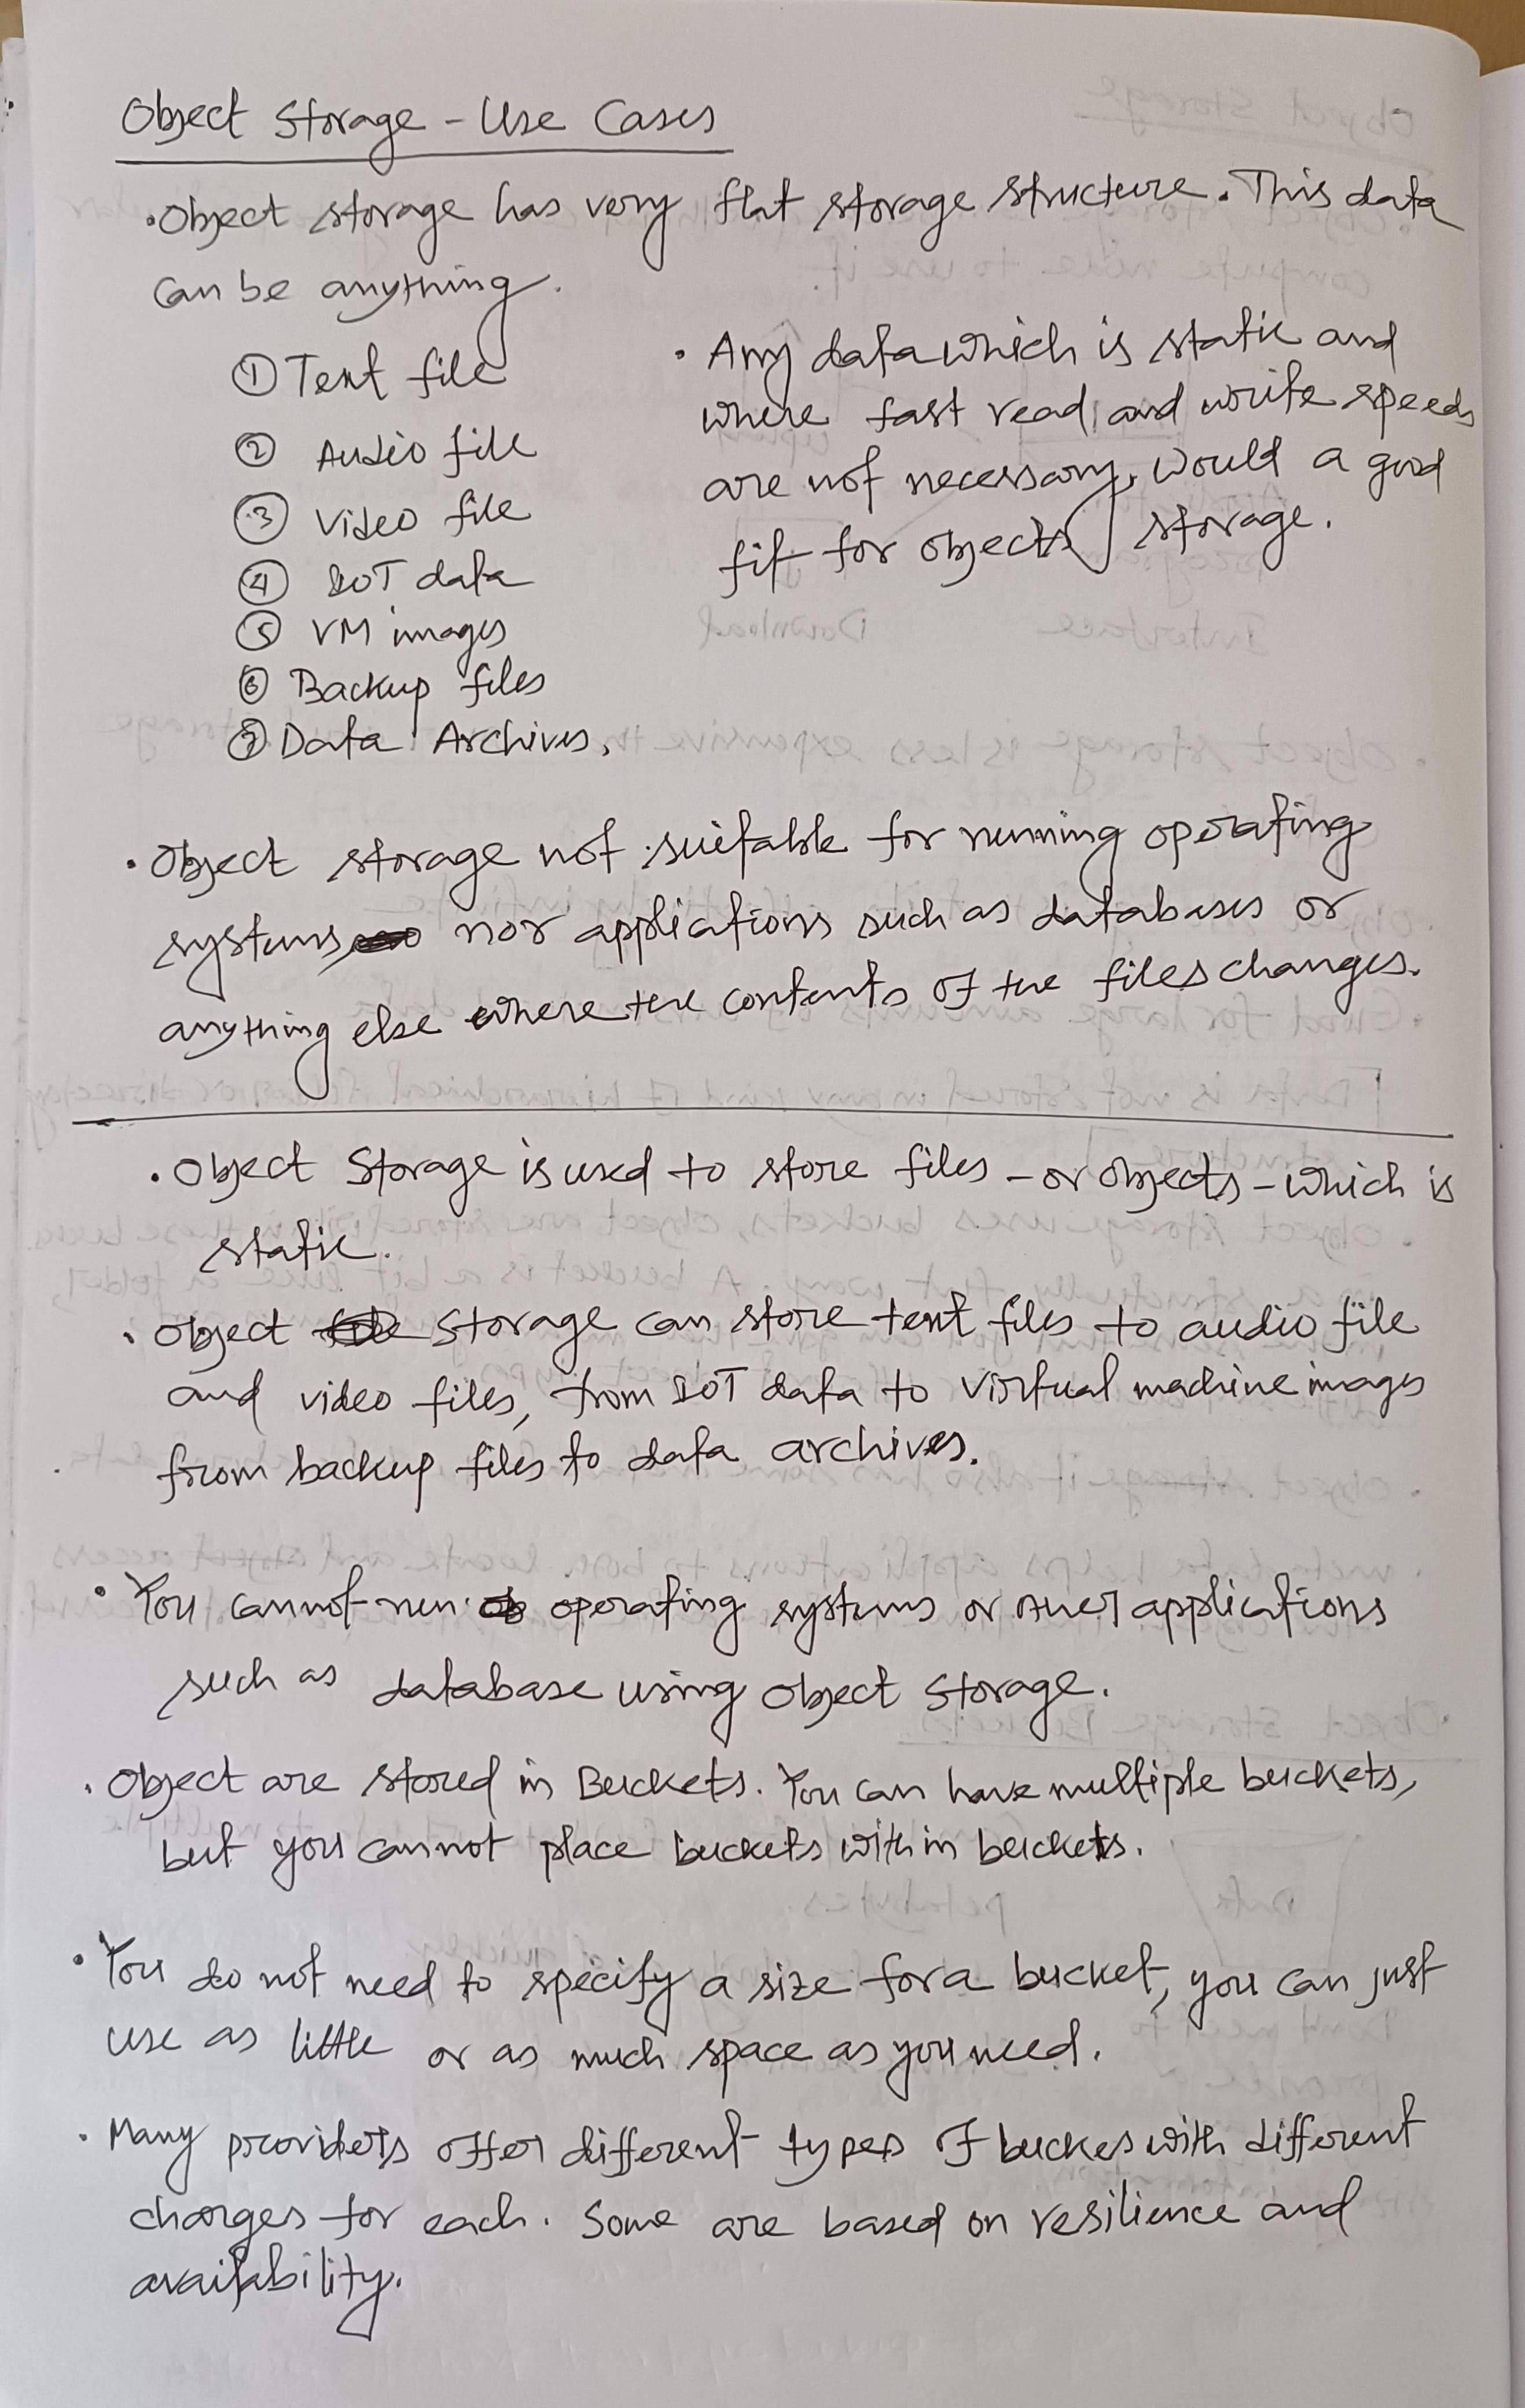 Object Storage - Use Cases
• Object storage has very flat storage structure. This data
can be anything.
① Text file
② Audio file
③ Video file
④ IOT data
⑤ VM images
⑥ Backup files
⑦ Data Archives.
• Any data which is static and
where fast read and write speeds
are not necessary, would a good
fit for objects storage.
• Object storage not suitable for running operating
systems, nor applications such as databases or
anything else where the contents of the files changes.
• Object Storage is used to store files - or objects - which is
static.
• Object Storage can store text files to audio file
and video files, from IOT data to virtual machine images
from backup files to data archives.
• You cannot run operating systems or other applications
such as database using Object Storage.
• Object are stored in Buckets. You can have multiple buckets,
but you cannot place buckets within buckets.
• You do not need to specify a size for a bucket, you can just
use as little or as much space as you need.
• Many providers offer different types of buckes with different
charges for each. Some are based on resilience and
availability.